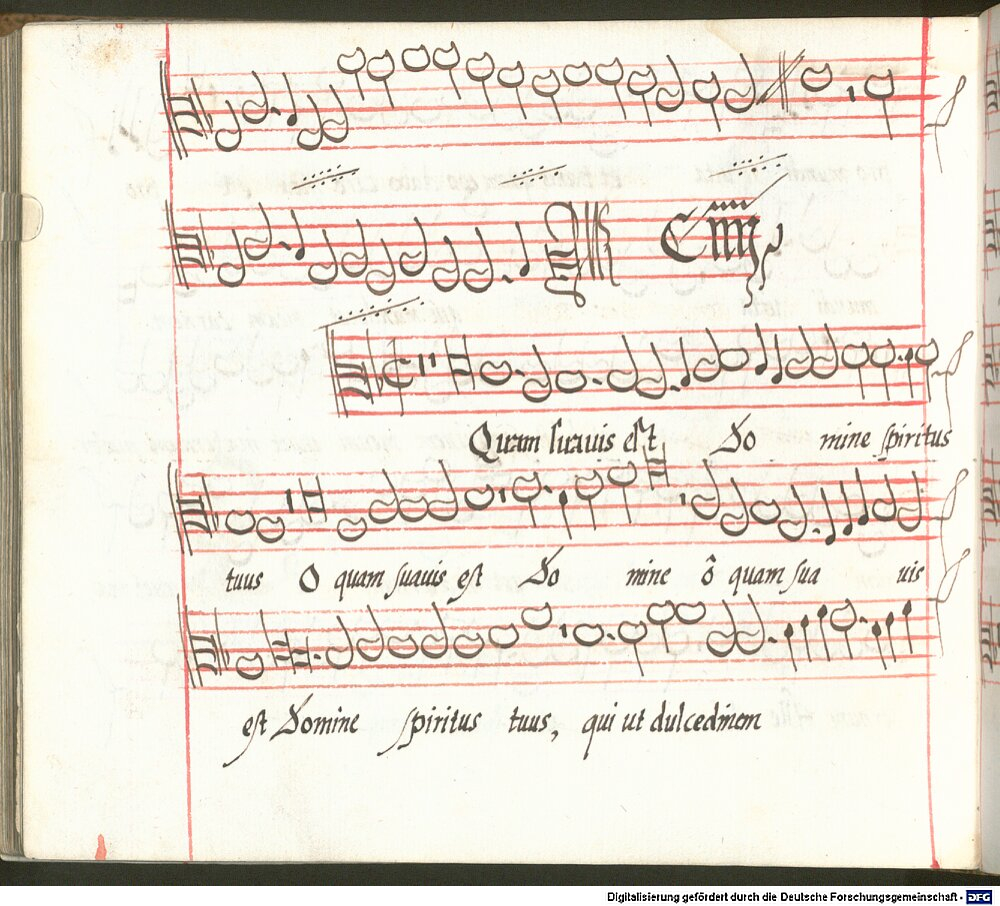 Quam suauis est Do mine spiritus
tuus O quam suauis est Do mine ô quam sua uis
est Domine spiritus tuus, qui ut dulcedinem
Digitalisierung gefördert durch die Deutsche Forschungsgemeinschaft - DFG